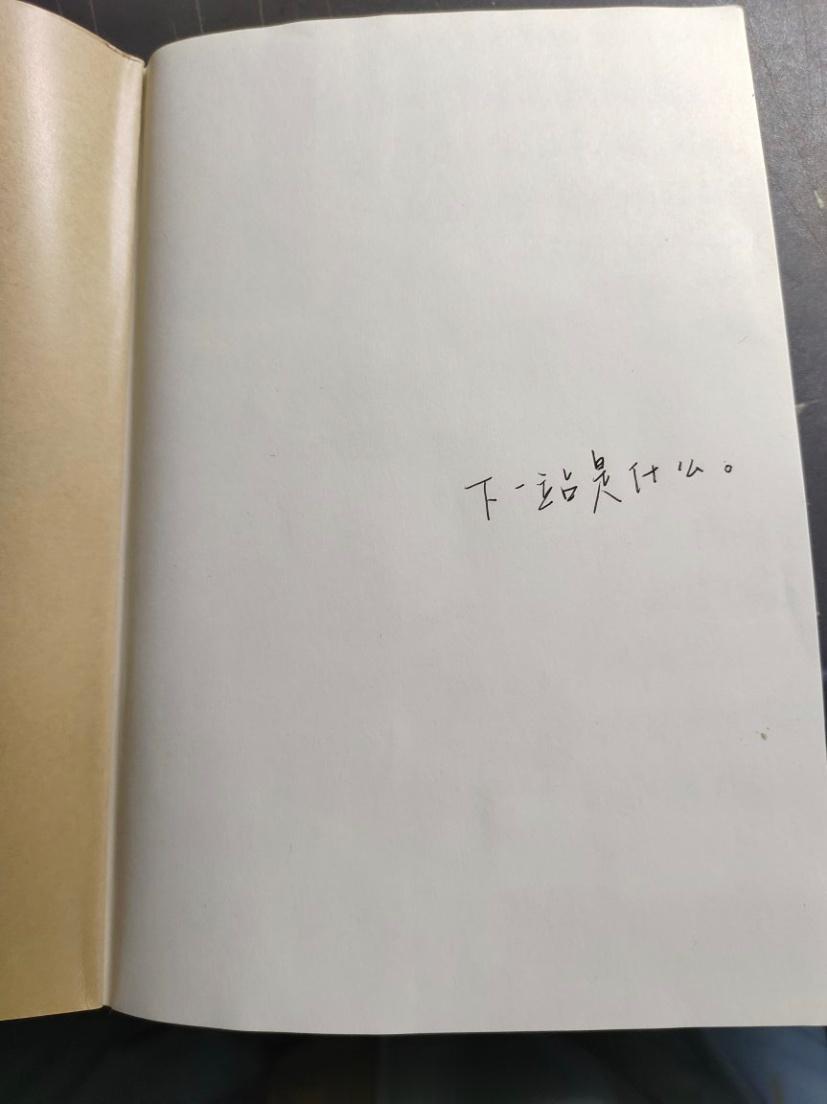 下一站是什么。